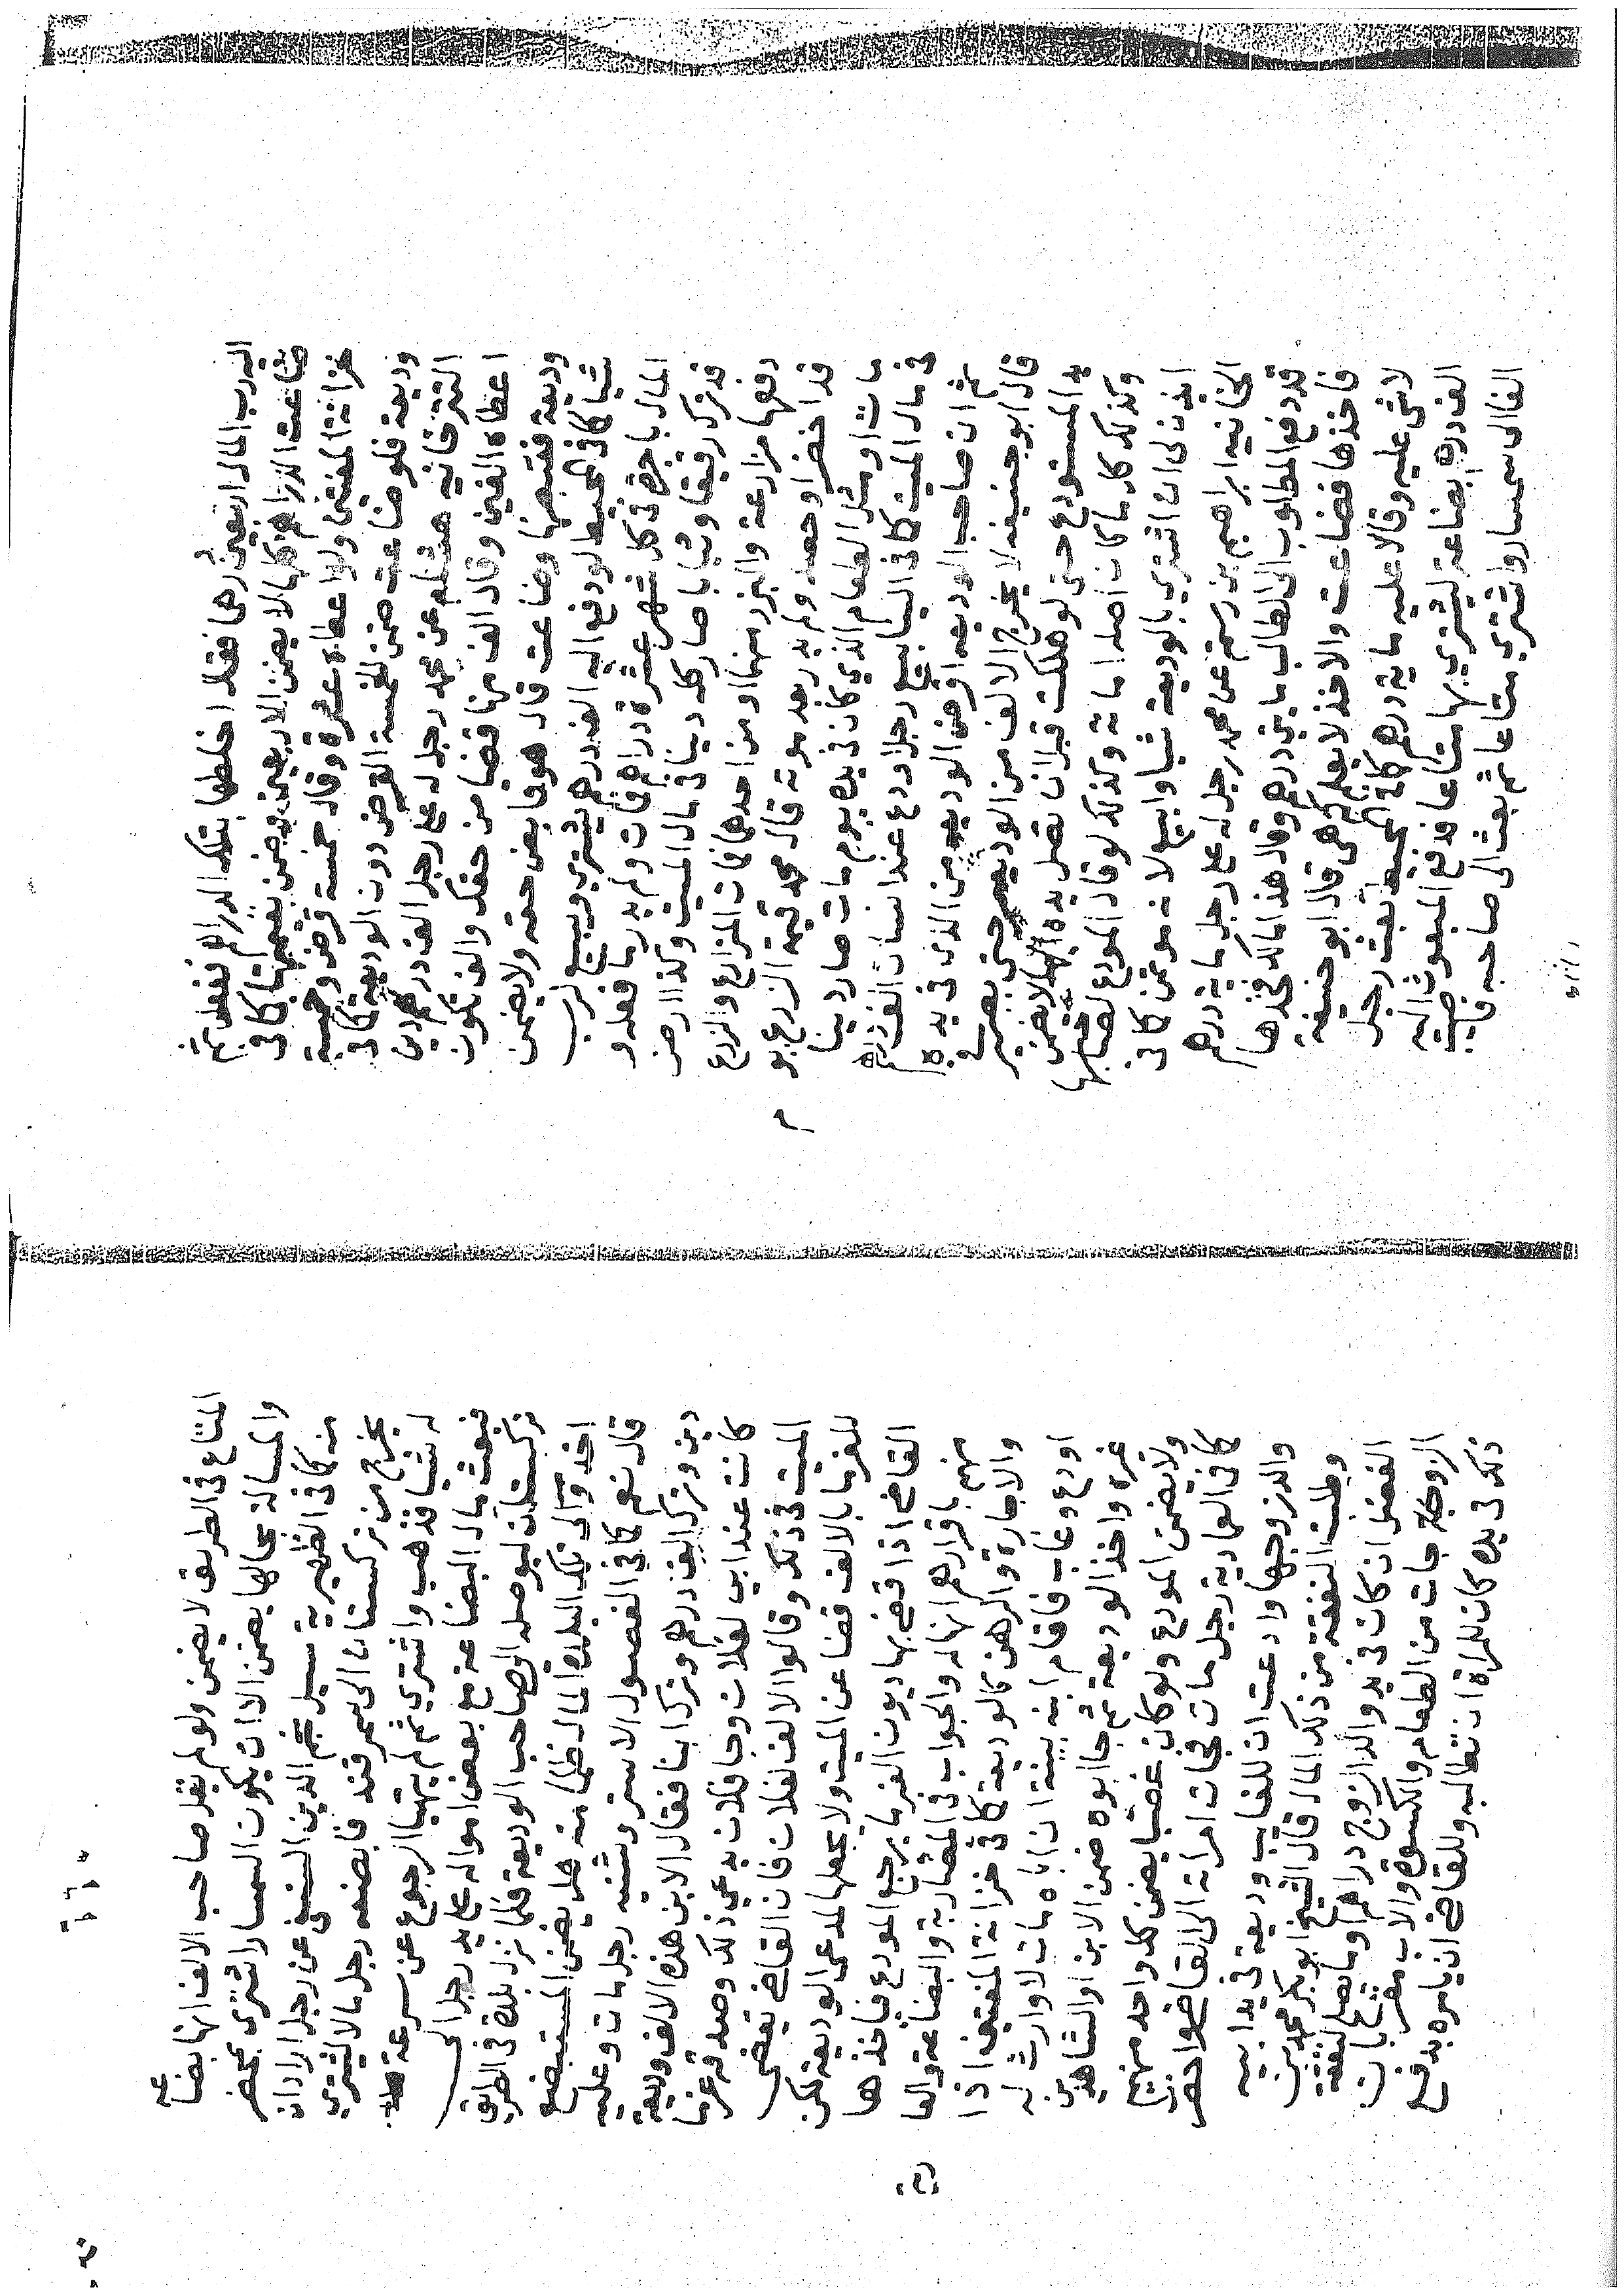 اليه رب المال اربعين درهما فقال اخلطها بتلك الدراهم ففعل ثم
ضاعت الدراهم كلها لا يضمن الاربعين ويضمن بقيتها كما في
خزانة المفتين ولو اعطاه عشرة وقال خمسة قرض وخمسة
وديعة فلو ضاعت ضمن الخمسة القرض دون الوديعة كما في
التترخانيه هشام عن محمد رجل له على رجل الف درهم دين
اعطاه الفين وقال الف منها قضا من حقك والف تكون
وديعة فقبضها وضاعت قال هو قابض حقه ولا يضمن
شيا كما في المحيط لو دفع اليه الف درهم يشتري ويبيع لرب
المال باجرة في كل شهر عشرة دراهم فمات ولم يدر ما فعل و
قد ترك رقيقا وثيابا صار كله دينا في مال الميت وكذا ارض
دفعها مزارعة والبزر منهما او من احدهما فمات المزارع والزرع
قد اخضر او حصد ولم يدر بعد موته قال محمد قيمة الزرع يوم
مات او مثل الطعام الذي كان في يده يوم مات صار دينا
في مال الميت كما في الينابيع رجل اودع عند انسان الف درهم
ثم ان صاحب الوديعه اقرض الوديعة من الذي في يده
قال ابو حنيفه لا يخرج الالف من الوديعة حتى يصير في
يد المستودع حتى لو هلكت قبل ان تصل يده اليها لا يضمن
وكذلك كل ما كان اصله امانة وكذلك لو قال المودع لصاحبها
ايذن لي ان اشتري بالوديعة شيا وابيع لانه مؤتمن كما في
الخانيه ابراهيم بن رستم عن محمد رجل له على رجل ماية درهم
قد دفع المطلوب الى الطالب مايتي درهم وقال هذا مالك فخذها
فاخذها فضاعت والاخذ لا يعلم كم هي قال ابو حنيفة
لا شي عليه وقالا عليه ماية درهم كما في المحيط بعث رجل
الف درهم بضاعة ليشتري بها متاعا فدفع المبعوث اليه
الف الى سمسار واشترى متاعا ثم بعث الى صاحبه فاصيب
المتاع في الطريق لا يضمن ولو لم يقل صاحب الالف انها بضاعة
والمسالة بحالها يضمن الا ان يكون السمسار اشترى بمحضر
منه كما في الظهيرية سيل نجم الدين النسفي عن رجل اراد ان
يخرج من تركستان الى سمرقند فابضعه رجل مالا ليشتري
له شيا فذهب واشترى ثم لم يتهيا الرجوع عن سرعة
فبعث مال البضاعة مع بعض امواله على يد رجل الى
تركستان ليوصله الى صاحب الوديعة فلما نزل بلدة في الطريق
اخذ والي تلك البلدة المال ظلما منه هل يضمن المستبضع
قال نعم كما في الفصول الاستروشنيه رجل مات وعليه
دين وترك الف درهم وترك ابنا فقال الابن هذه الالف وديعة
كانت عند ابي لفلان وجا فلان يدعي ذلك وصدقه غرما
الميت في ذلك وقالوا الالف لفلان فان القاضي يقضي
للغرما بالالف قضا عن الميت ولا يجعلها لمدعي الوديعة لكن
القاضي اذا قضى بها ديون الغرما يرجع المودع فياخذها
منهم باقرارهم انها له والجواب في المضاربة والبضاعة والعا
والاجارة والرهن كالوديعة كما في خزانة المفتين اذا
اودع وغاب فاقام ابنه بينة ان اباه مات لا وارث له
غيره واخذ الوديعة ثم جا ابوه ضمن الابن او الشاهدين
ولا يضمن المودع ولو كان غصبا يضمن كل واحد منهم
كما في العمادية رجل مات فجات امراته الى القاضي واحضر
والد زوجها وادعت ان للغايب وديعة في يد ابيه
وطلبت النفقة من ذلك المال قال الشيخ ابو بكر محمد بن
الفضل ان كان في يد والد الزوج دراهم او ما يصلح لنفقة
الزوجة جات من الطعام والكسوة والاب مقر بان
ذلك في يده كان للمراة ان تطالبه وللقاضي ان يامره بدفع